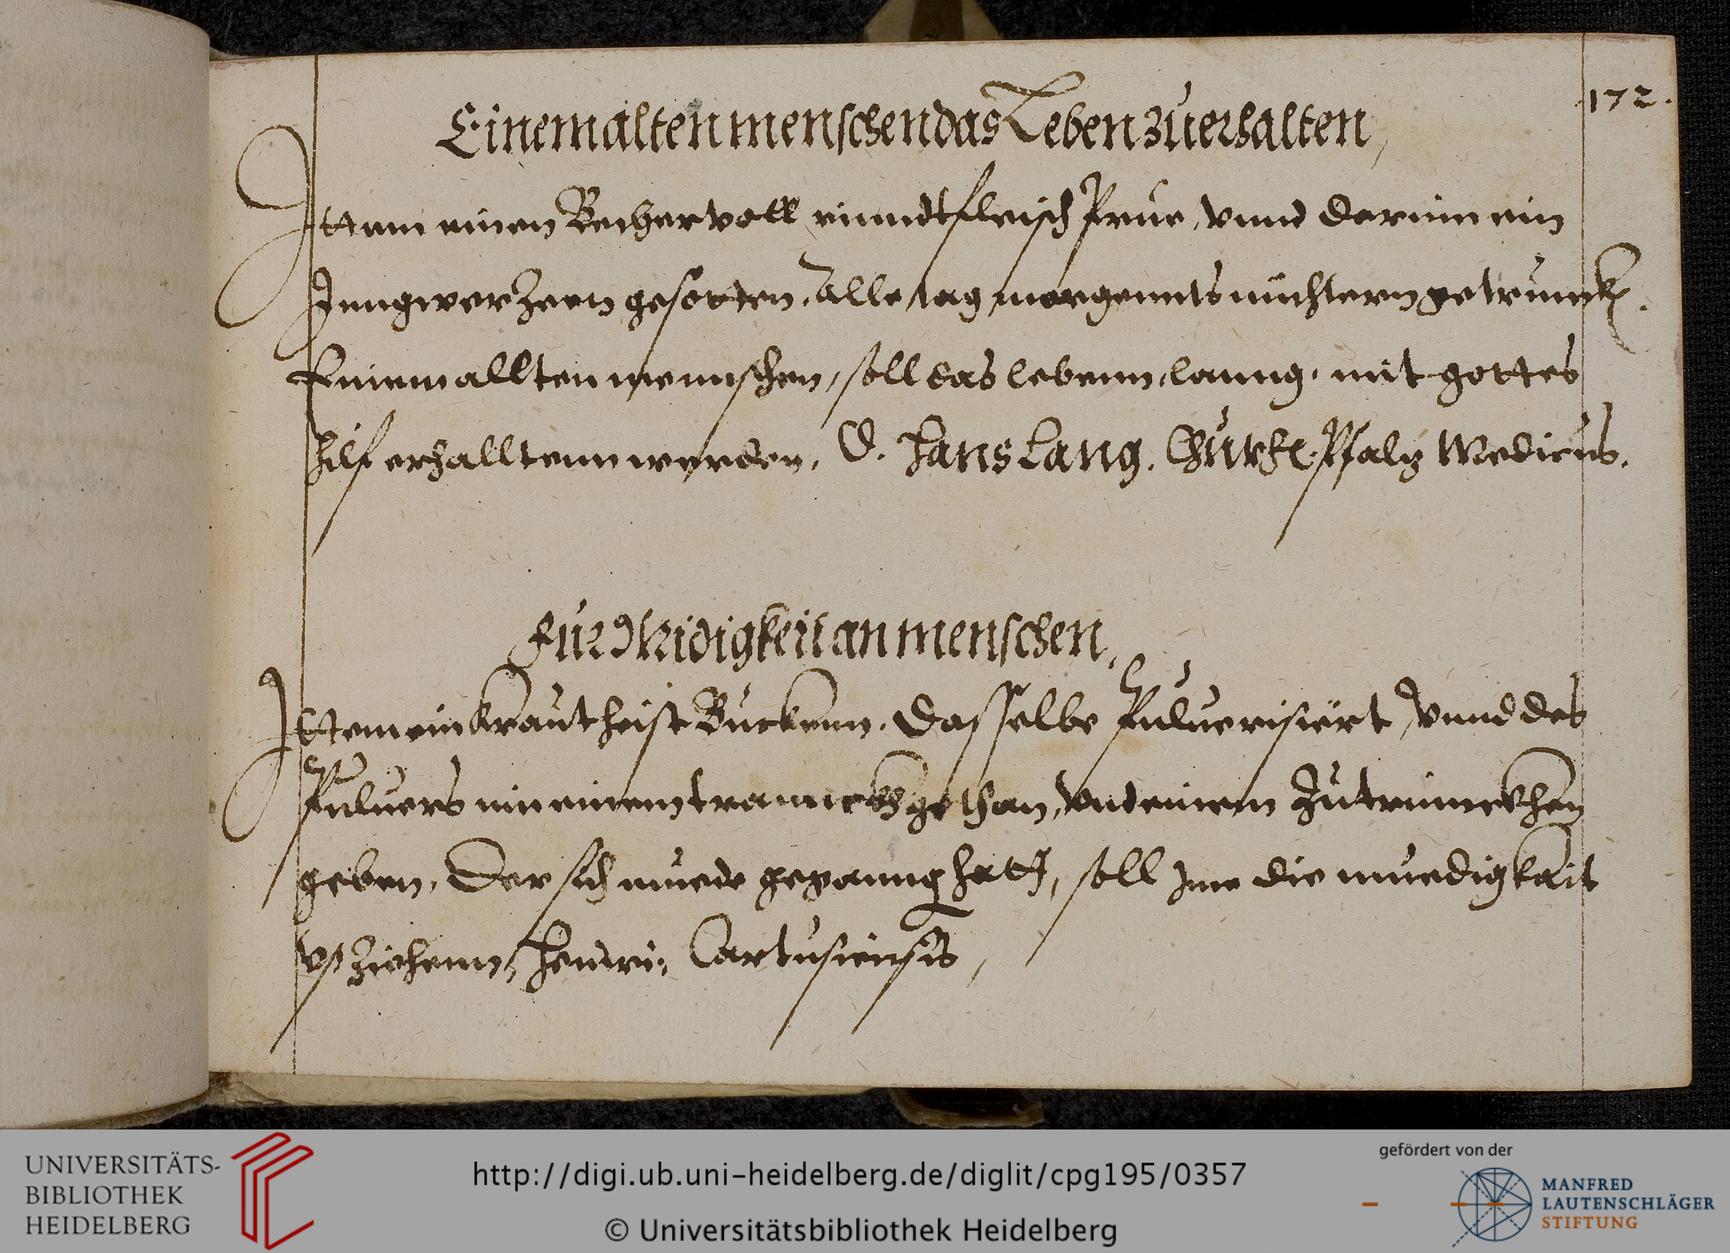 172.
Einem alten menschen das Leben zuerhalten,
Ittem einen Becher voll rinndtfleisch Prue, vnnd darinn ein
Inngwer Zeen gesotten, Alle tag morgennts nüchtern getrunck.
Einem allten mennschen, soll das lebenn, lanng, mit gottes
hilf erhalltenn werden, D. Hans Lang. Churf: Pfaltz Medicus.
Für Müdigkeit an menschen,
Ittem ein kraut heist Buckenn. Dasselbe Puluerisiert, vnnd des
Puluers inn einem trannckh gethan, vnd einem zutrinnckhen
geben, Der sich muede geganng hatt, soll Ime die muedigkait
vß Ziehenn, Henri: Cartusiensis,
UNIVERSITÄTS-
BIBLIOTHEK
HEIDELBERG
http://digi.ub.uni-heidelberg.de/diglit/cpg195/0357
© Universitätsbibliothek Heidelberg
gefördert von der
MANFRED
LAUTENSCHLÄGER
STIFTUNG